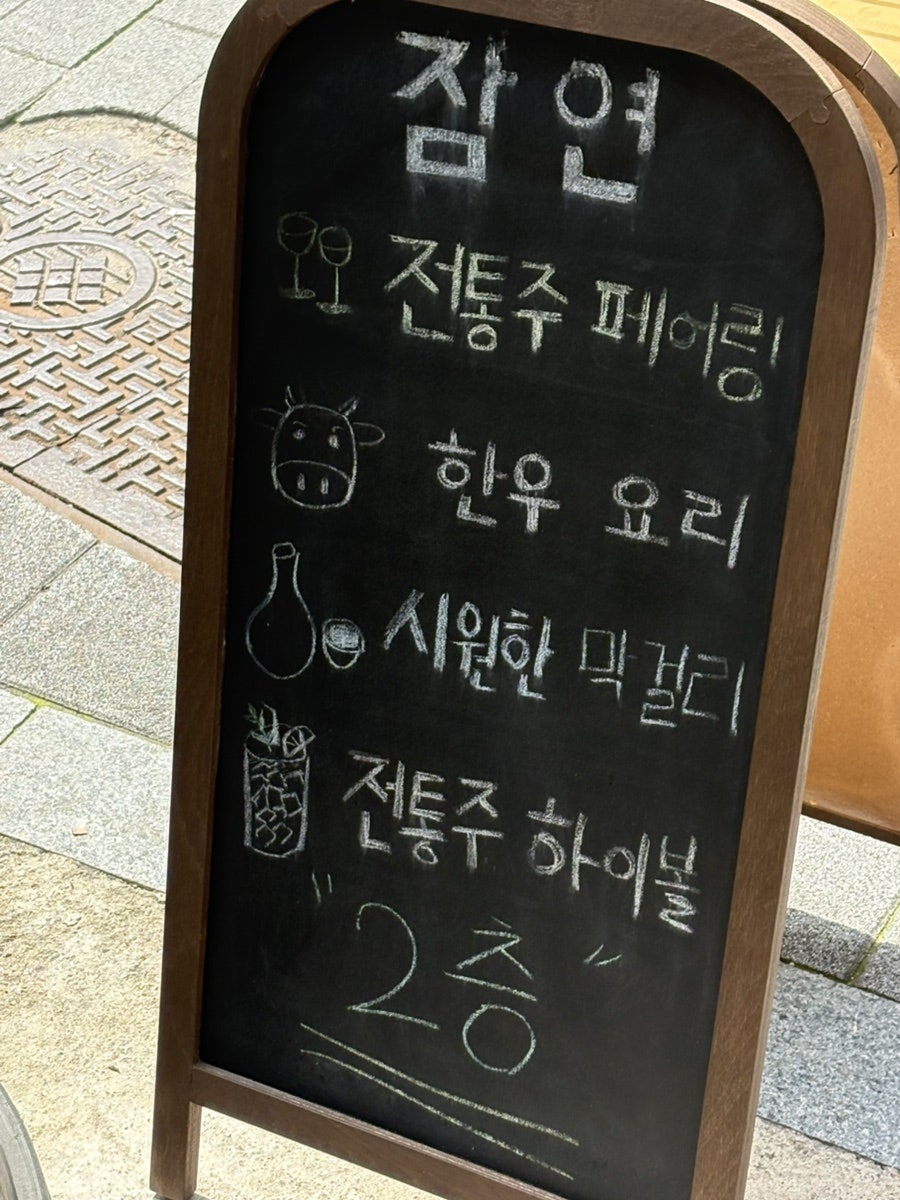 잠연
전통주 페어링
한우 요리
시원한 막걸리
전통주 하이볼
"2층"